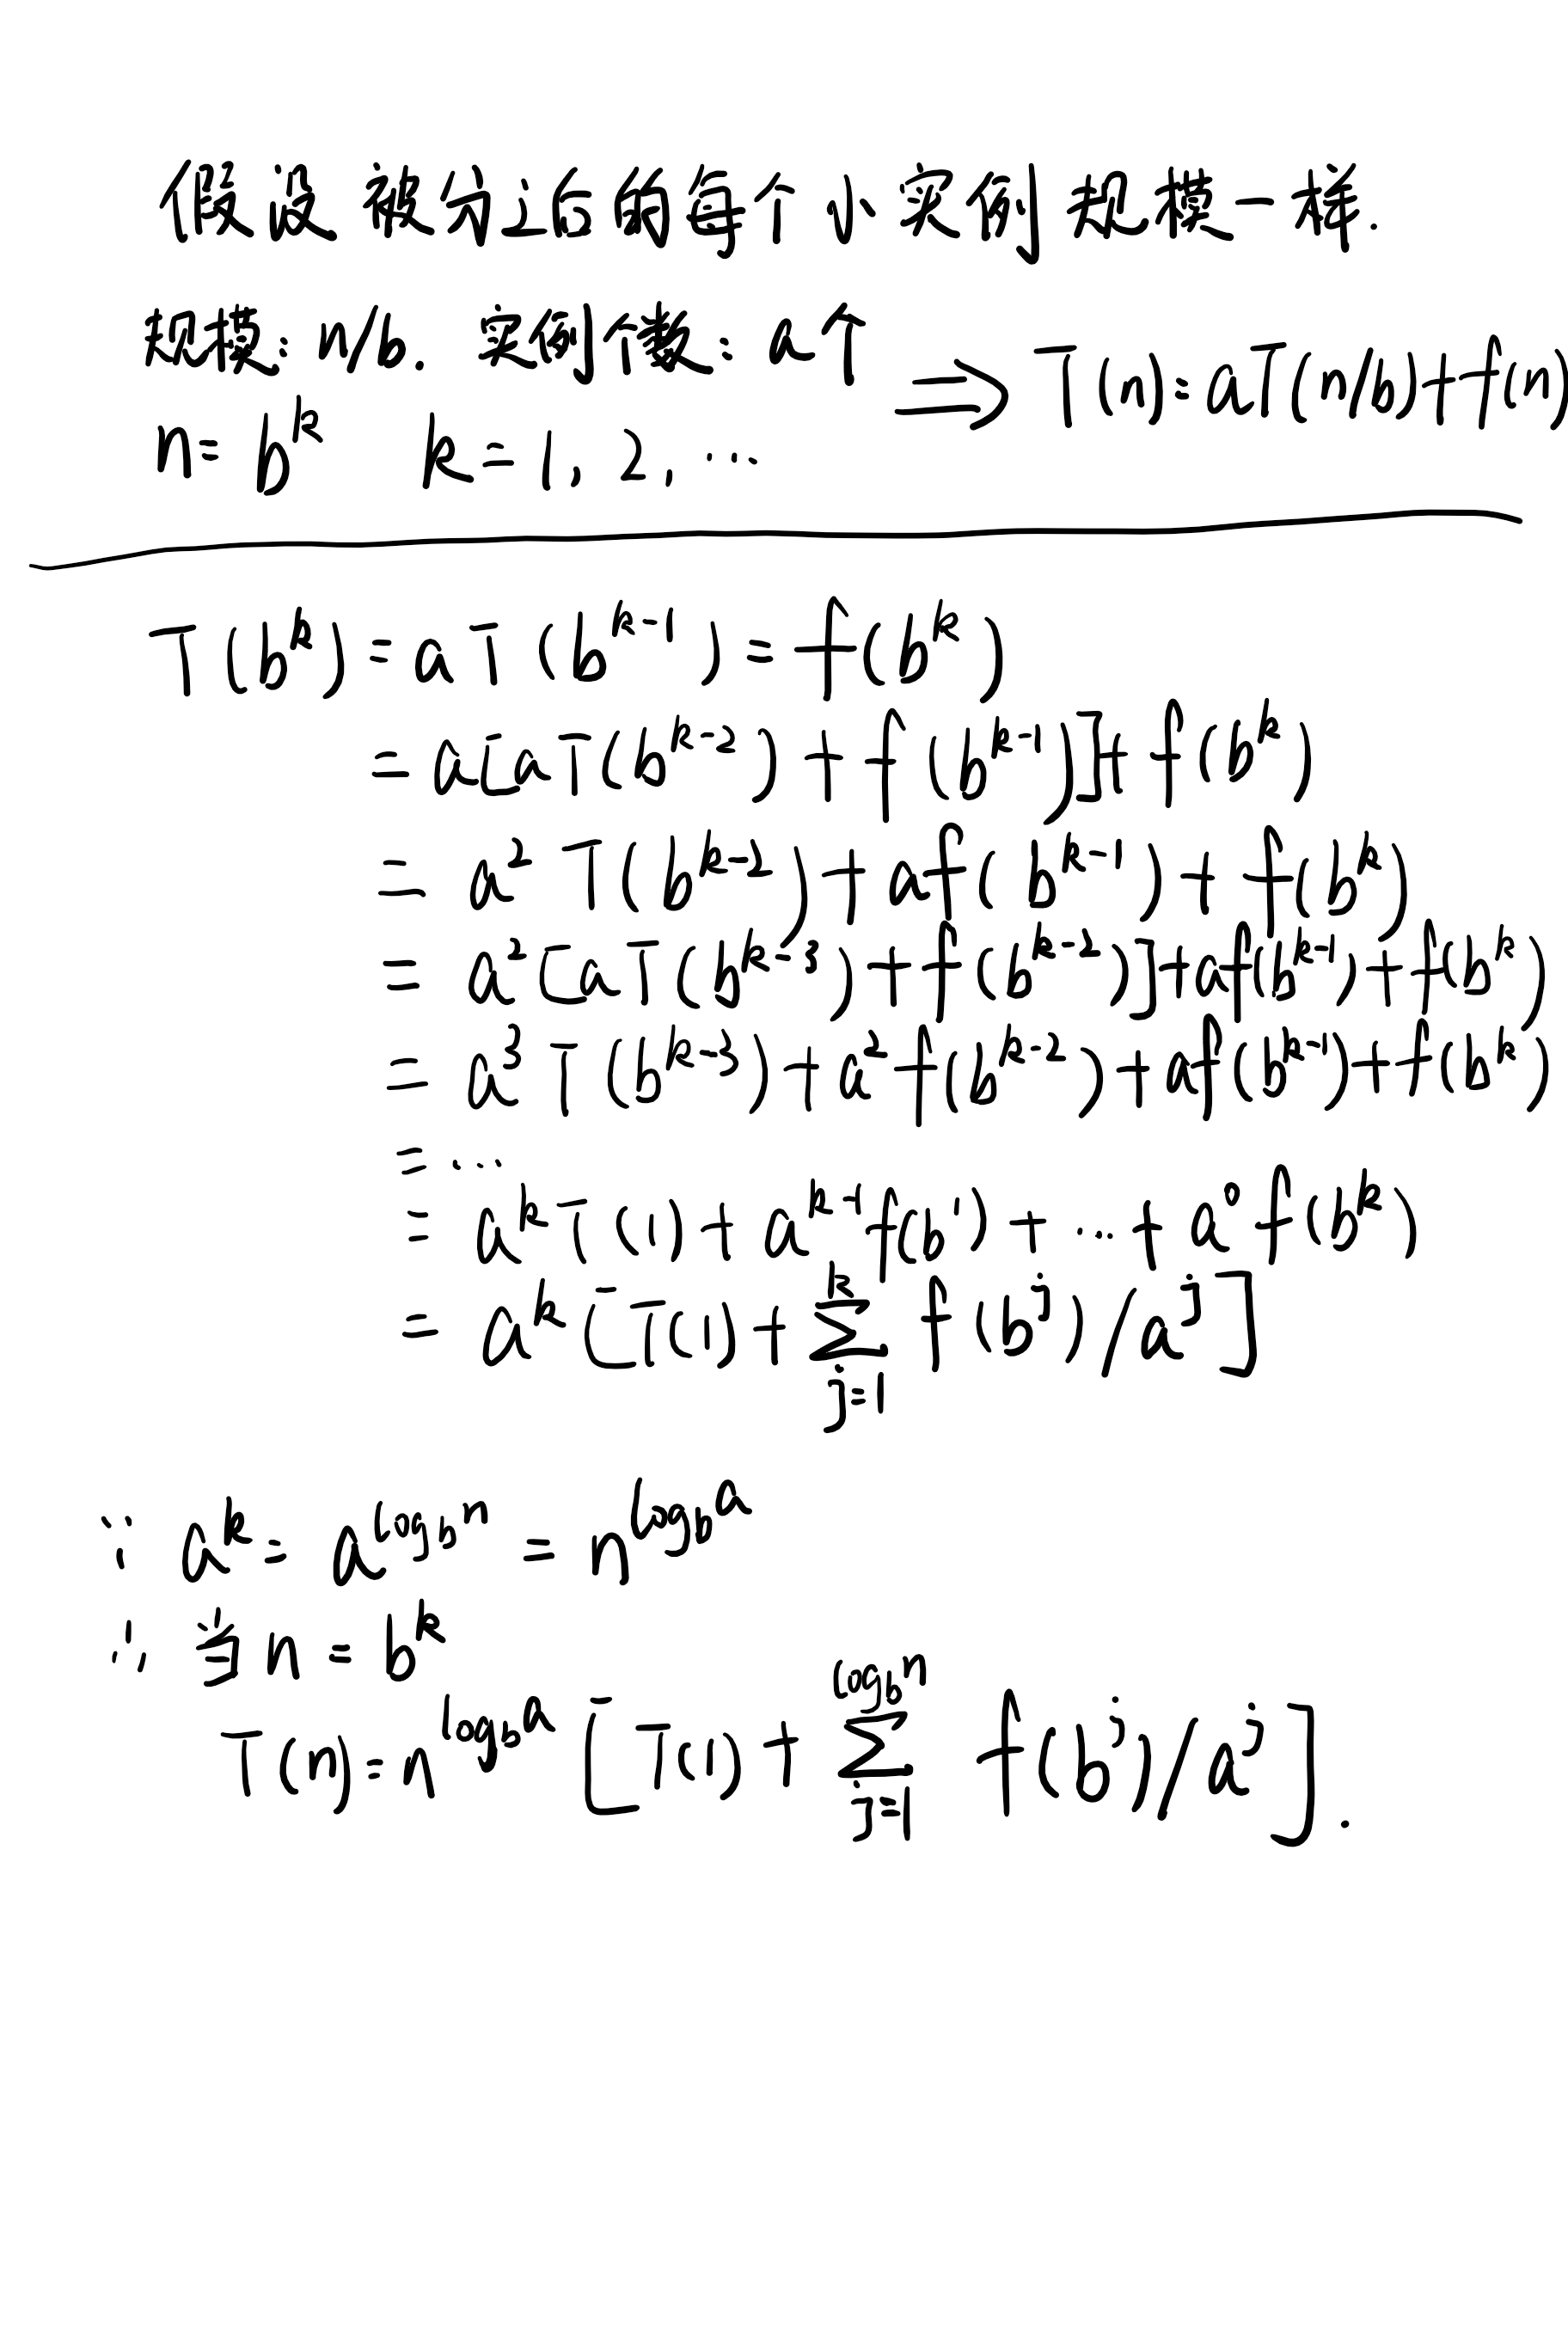 假设被分治后的每个小实例规模一样.
规模: n/b. 实例个数: a个 ⇒ T(n)=aT(n/b)+f(n)
n=b^k k=1, 2, ...
T(b^k)=aT(b^{k-1})=f(b^k)
=a[aT(b^{k-2})+f(b^{k-1})]+f(b^k)
=a^2T(b^{k-2})+af(b^{k-1})+f(b^k)
=a^2[aT(b^{k-3})+f(b^{k-2})]+af(b^{k-1})+f(b^k)
=a^3T(b^{k-3})+a^2f(b^{k-2})+af(b^{k-1})+f(b^k)
=...
=a^kT(1)+a^{k-1}f(b^1)+...+a^0f(b^k)
=a^k[T(1)+∑_{j=1}^{k} f(b^j)/a^j]
∵ a^k=a^{log_b n}=n^{log_b a}
∴ 当n=b^k
T(n)=n^{log_b a}[T(1)+∑_{j=1}^{log_b n} f(b^j)/a^j].